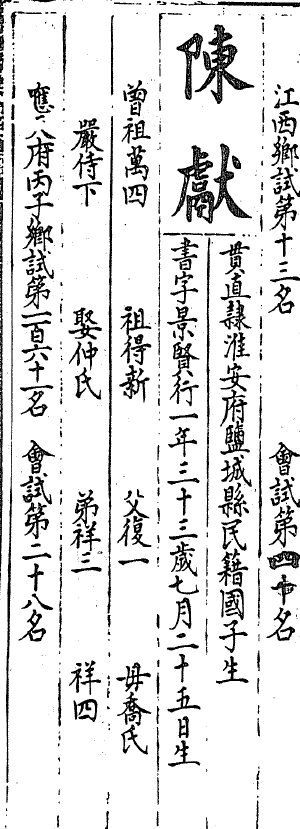 江西鄉試第十三名 會試第四十名
陳獻
貫直隸淮安府鹽城縣民籍國子生
書字景賢行一年三十三歲七月二十五日生
曾祖萬四 祖得新 父復一 母喬氏
嚴侍下 娶仲氏 弟祥三 祥四
應天府丙子鄉試第一百六十一名 會試第二十八名